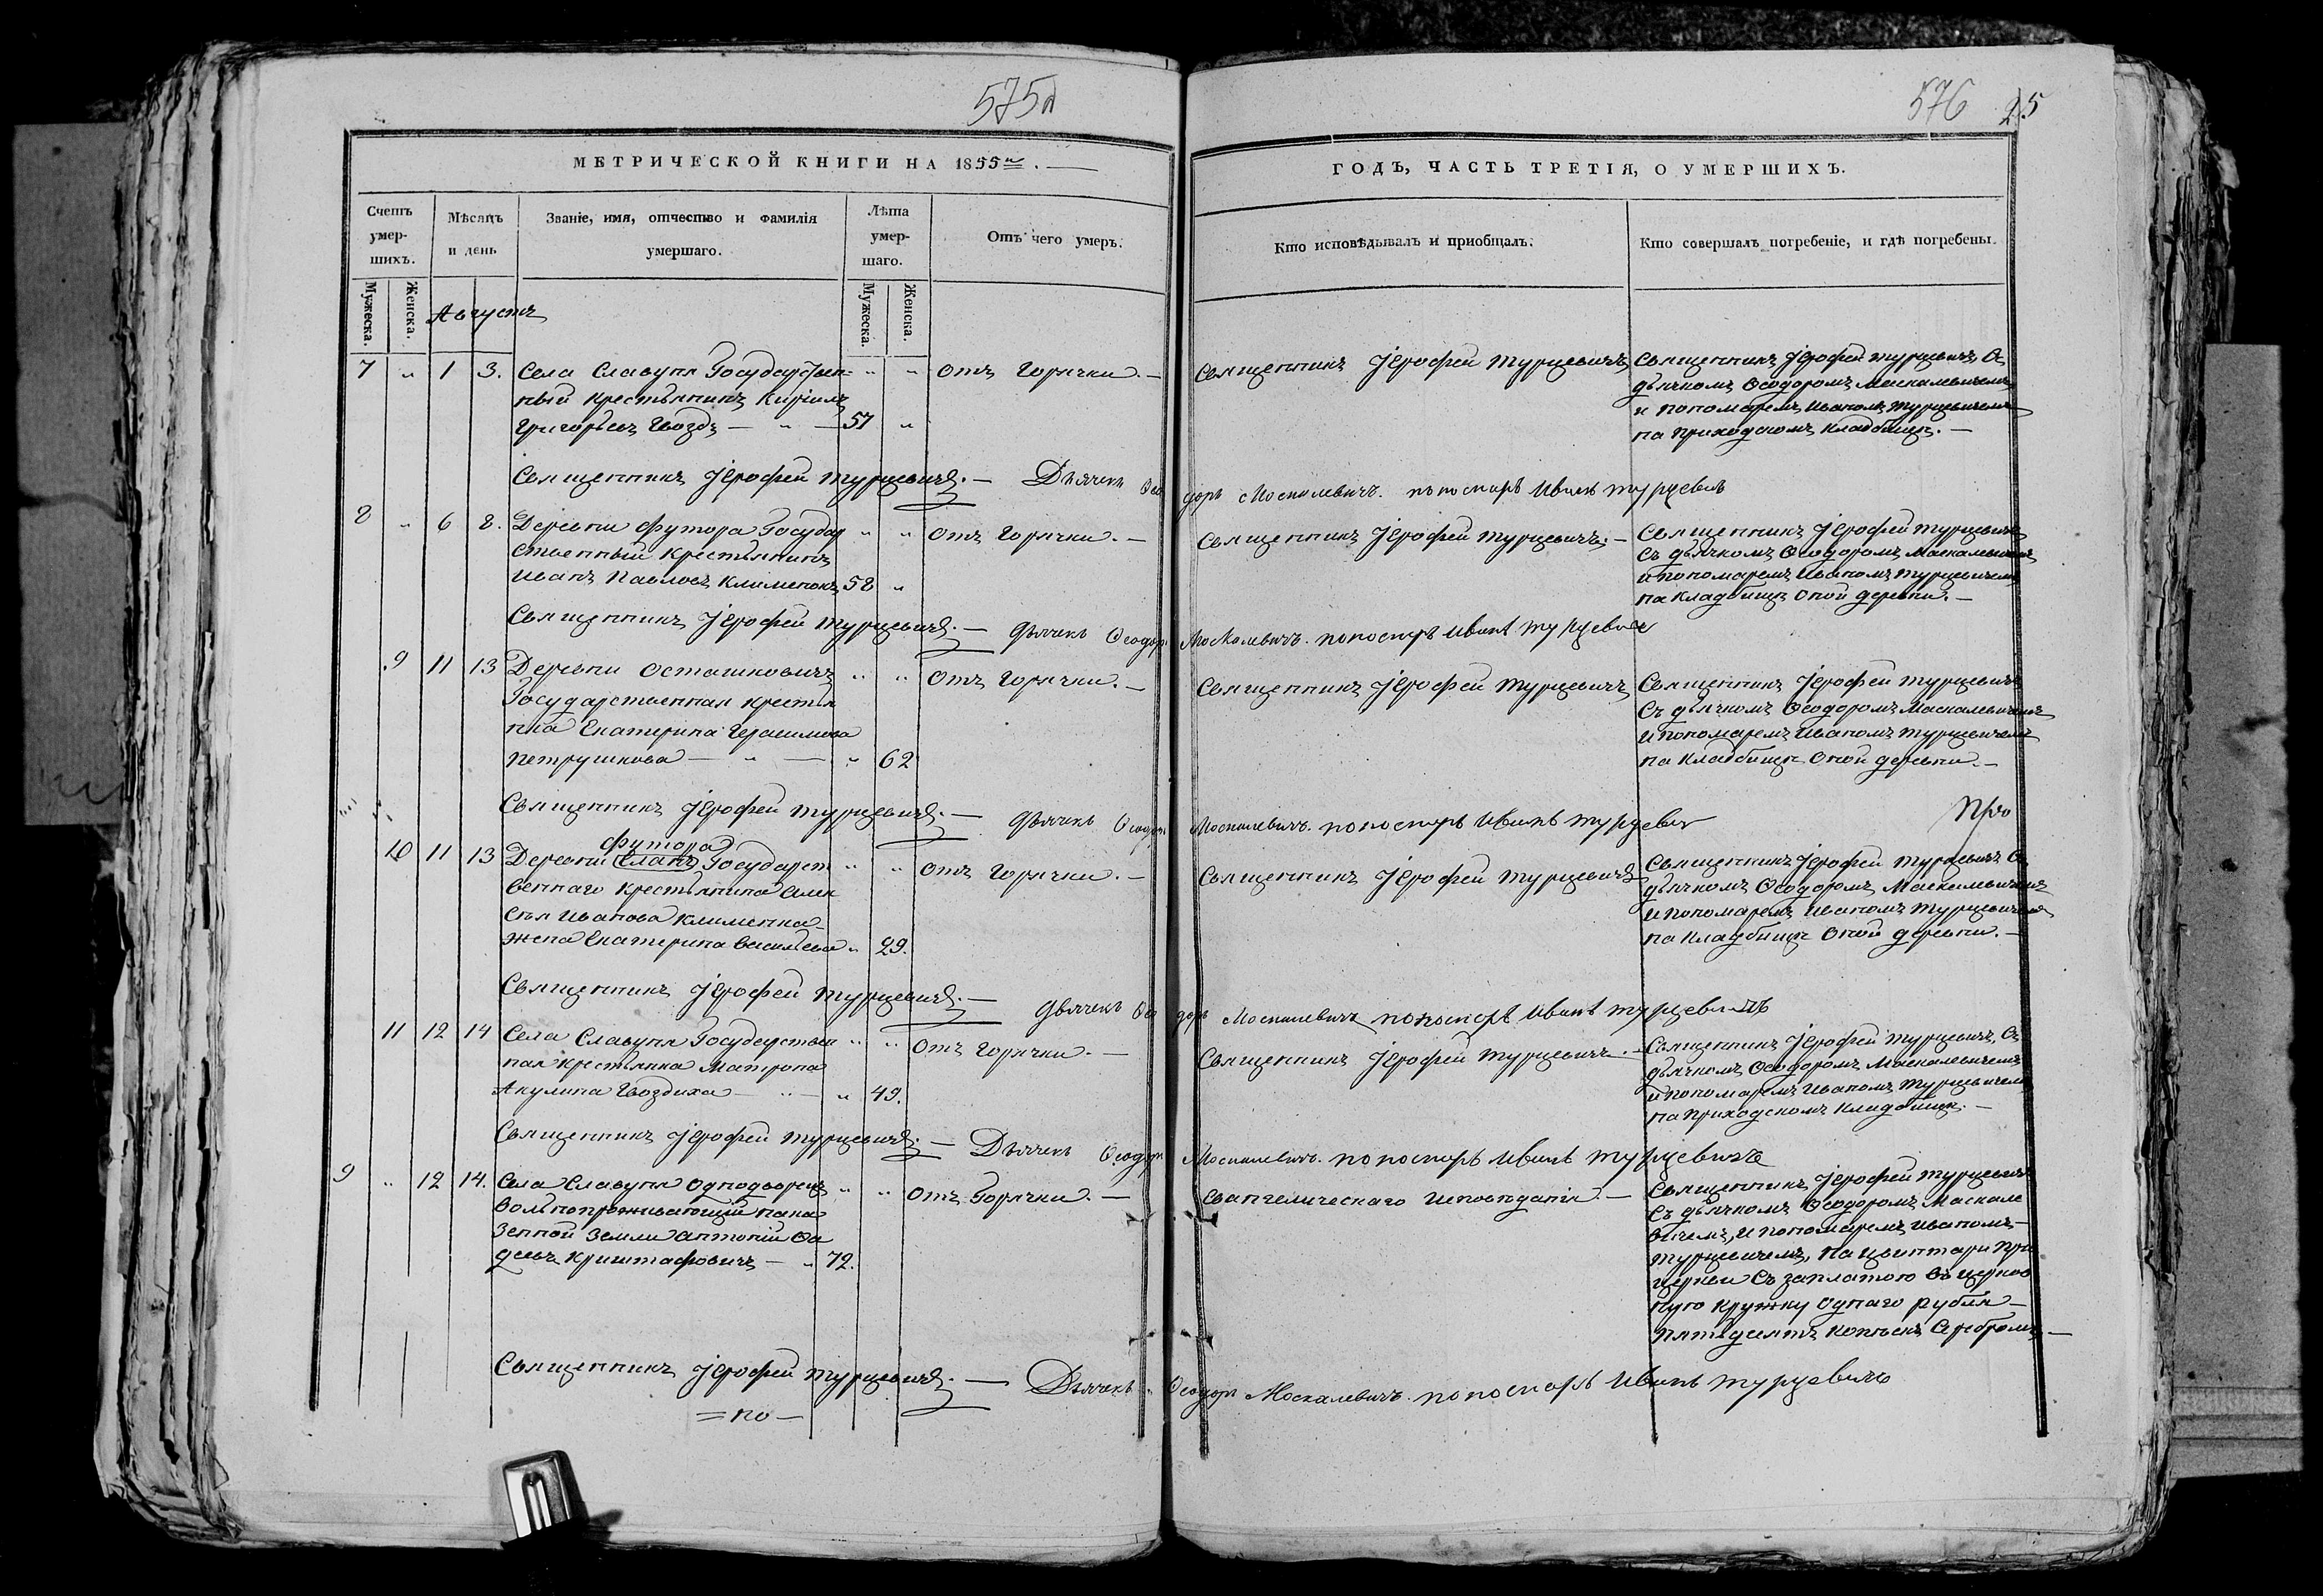 575д
576 25
МЕТРИЧЕСКОЙ КНИГИ НА 1855й.
ГОДЪ, ЧАСТЬ ТРЕТІЯ, О УМЕРШИХЪ.
Счетъ умер-шихъ.
Мѣсяцъ и день
Званіе, имя, отчество и фамилія умершаго.
Лѣта умер-шаго.
Отъ чего умеръ.
Кто исповѣдывалъ и пріобщалъ.
Кто совершалъ погребеніе, и гдѣ погребены.
Мужеска.
Женска.
Мужеска.
Женска.
Августъ
7 „ 1 3. Села Славуня Государствен- „ „ отъ горячки.—
ный крестьянинъ Кирилъ
Григорьевъ Гвоздь — „ — 57 „
Священникъ Іерофей Турцевичъ
Священникъ Іерофей Турцевичъ, съ
дьячкомъ Ѳеодоромъ Маскалевичемъ
и пономаремъ Иваномъ Турцевичемъ
на приходскомъ кладбищѣ.—
Священникъ Іерофей Турцевичъ.— Дьячекъ Ѳеодоръ Москалевичъ. пономаръ Иванъ Турцевичъ
8 „ 6 8. Деревни Футора Государ „ „ отъ горячки.—
ственный крестьянинъ
Иванъ Павловъ Клименокъ 58 „
Священникъ Іерофей Турцевичъ.—
Священникъ Іерофей Турцевичъ
съ дьячкомъ Ѳеодоромъ Маскалевичемъ
и пономаремъ Иваномъ Турцевичемъ
на кладбищѣ оной деревни.—
Священникъ Іерофей Турцевичъ.— дьячекъ Ѳеодоръ Москалевичъ. пономаръ Иванъ Турцевичъ
9 11 13 Деревни Осташковичъ „ „ отъ горячки.—
Государственная крестья
нка Екатерина Герасимова
Петрушкова — „ — „ 62
Священникъ Іерофей Турцевичъ
Священникъ Іерофей Турцевичъ
съ дьячкомъ Ѳеодоромъ Маскалевичемъ
и пономаремъ Иваномъ Турцевичемъ
на кладбищѣ оной деревни.—
Священникъ Іерофей Турцевичъ.— дьячекъ Ѳеодоръ Москалевичъ. пономаръ Иванъ Турцевич
футора
10 11 13 Деревни Государст „ „ отъ горячки.—
веннаго крестьянина Алек
сѣя Иванова Клименка
жена Екатерина Васильева „ 29.
Священникъ Іерофей Турцевичъ
Священникъ Іерофей Турцевичъ съ
дьячкомъ Ѳеодоромъ Маскалевичемъ
и пономаремъ Иваномъ Турцевичемъ
на кладбищѣ оной деревни.—
Священникъ Іерофей Турцевичъ.— дьячекъ Ѳеодоръ Москалевичъ пономаръ Иванъ Турцевичъ
11 12 14 Села Славуня Государствен „ „ отъ горячки.—
ная крестьянка Матрона
Акулина Гвоздиха — „ — „ 49.
Священникъ Іерофей Турцевичъ.—
Священникъ Іерофей Турцевичъ, съ
дьячкомъ Ѳеодоромъ Маскалевичемъ
и пономаремъ Иваномъ Турцевичемъ
на приходскомъ кладбищѣ.—
Священникъ Іерофей Турцевичъ.— Дьячекъ Ѳеодоръ Москалевичъ. пономаръ Иванъ Турцевичъ
9 „ 12 14. Села Славуня однодворецъ „ „ отъ горячки.—
вольнопроживающій на ка
зенной земли Антоній Фа
деевъ Криштафовичъ — „ 72.
Евангелическаго исповѣданія.—
Священникъ Іерофей Турцевичъ
съ дьячкомъ Ѳеодоромъ Маскале
вичемъ, и пономаремъ Иваномъ
Турцевичемъ, на цвинтари при
церкви съ заплатою въ церков
ную кружку одного рубля
пятьдесятъ копѣекъ серебромъ.—
Священникъ Іерофей Турцевичъ.— Дьячекъ Ѳеодоръ Москалевичъ. пономаръ Иванъ Турцевичъ
=но—